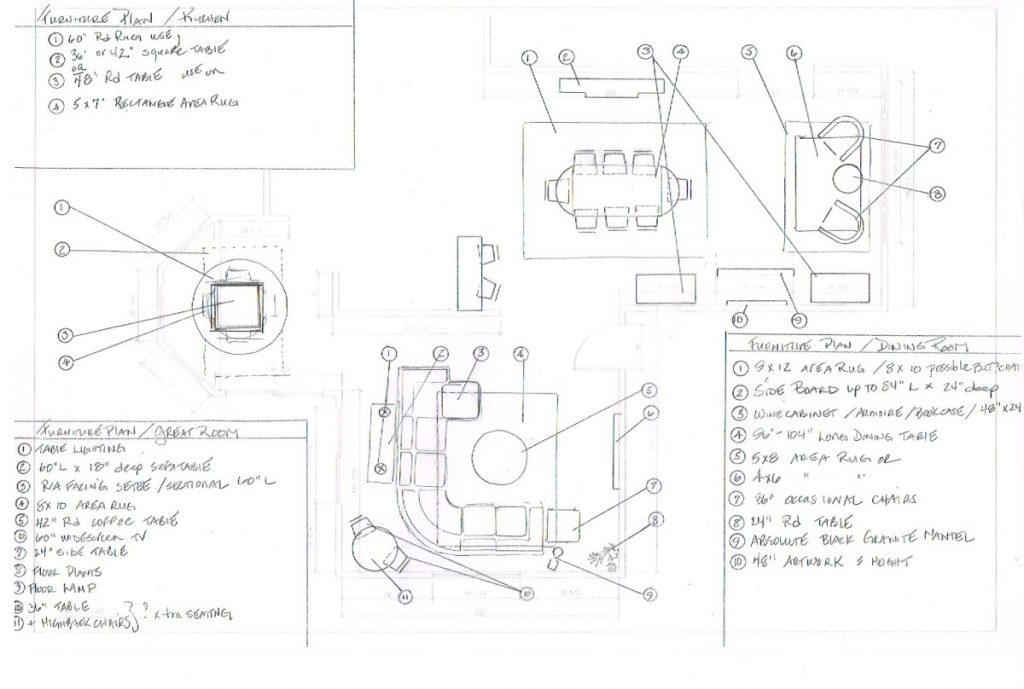 FURNITURE PLAN / KITCHEN
① 60" Rd RUG USE
② 36" or 42" SQUARE TABLE
OR
③ 48" Rd TABLE USE ON
④ 5 x 7' RECTANGLE AREA RUG
FURNITURE PLAN / GREAT ROOM
① TABLE LIGHTING
② 60"L x 18" deep SOFA TABLE
③ R/A FACING SETEE / SECTIONAL 60" L
④ 8X10 AREA RUG
⑤ 42" Rd COFFEE TABLE
⑥ 60" WIDESCREEN TV
⑦ 24" SIDE TABLE
⑧ FLOOR PLANTS
⑨ FLOOR LAMP
⑩ 36" TABLE
⑪ 4 HIGHBACK CHAIRS } ? xtra SEATING
FURNITURE PLAN / DINING ROOM
① 9 x 12 AREA RUG / 8 x 10 possible
② SIDE BOARD UP TO 84" L x 24" deep
③ WINE CABINET / ARMOIRE / BOOKCASE / 48" x 24
④ 96"-104" LONG DINING TABLE
⑤ 5x8 AREA RUG OR
⑥ 4x6 " "
⑦ 36" OCCASIONAL CHAIRS
⑧ 24" Rd TABLE
⑨ ABSOLUTE BLACK GRANITE MANTEL
⑩ 48" ARTWORK HEIGHT
① ② ③ ④ ⑤ ⑥ ⑦ ⑧ ⑨ ⑩
① ② ③ ④
① ② ③ ④ ⑤ ⑥ ⑦ ⑧ ⑨ ⑩ ⑪